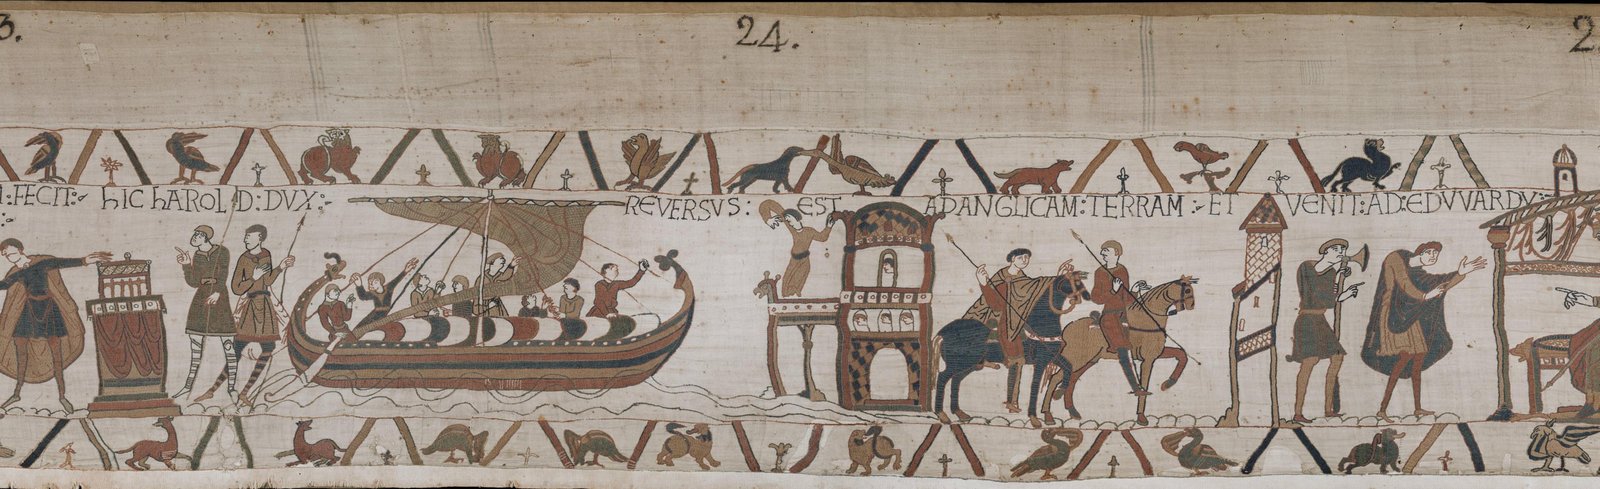 3. 24. 2
:FECIT: hIC hAROLD:DVX: REVERSVS: EST AD ANGLICAM:TERRAM: ET VENIT:AD:EDVVARDV: